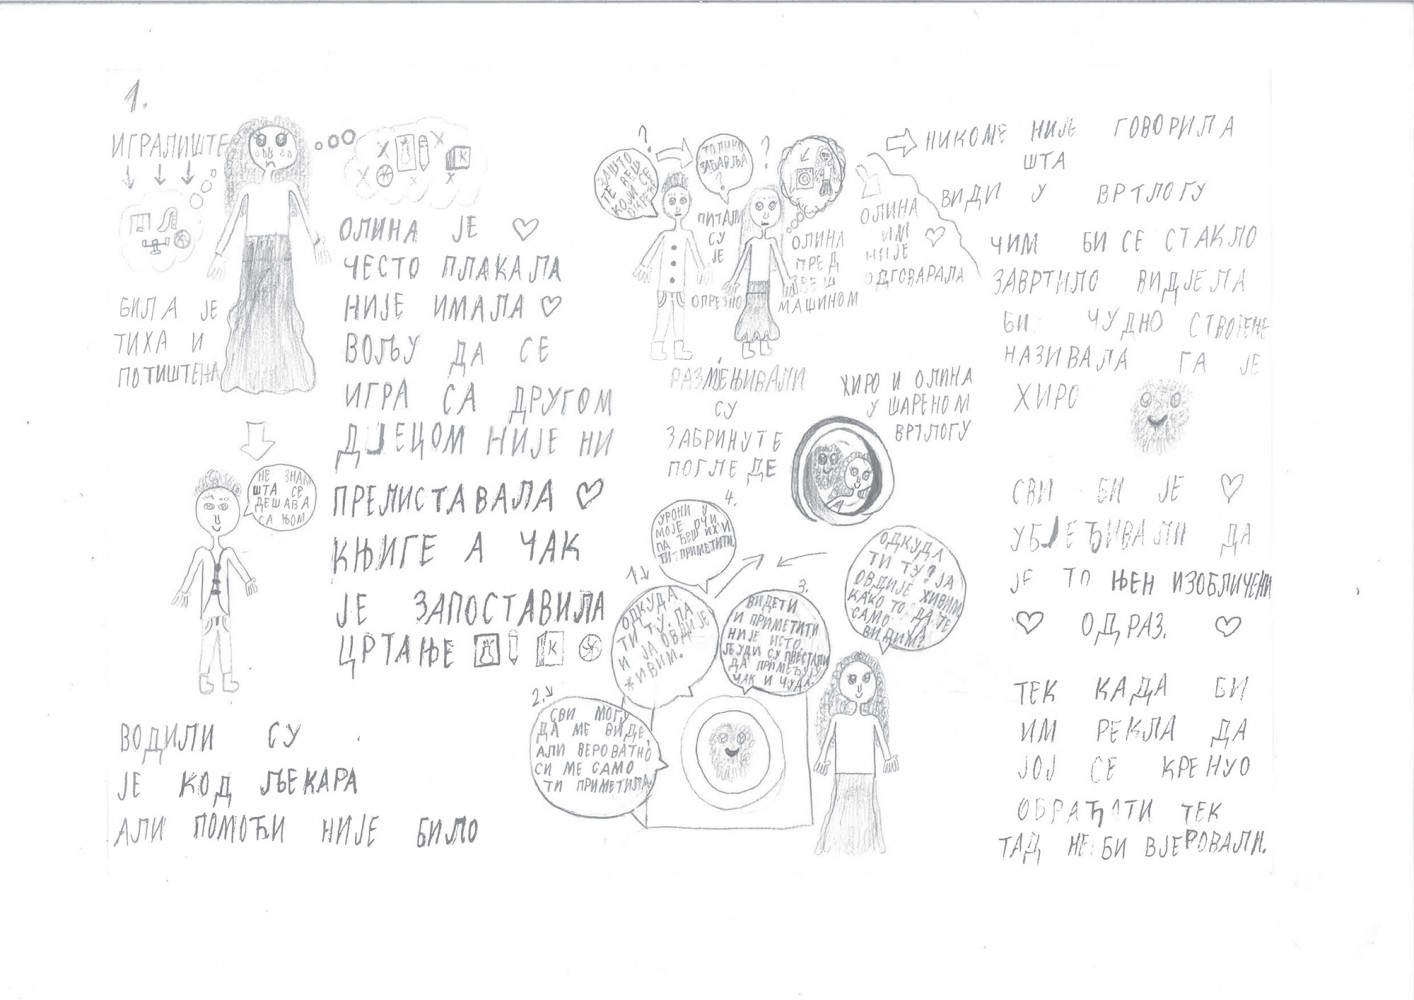 1.
ИГРАЛИШТЕ
БИЛА ЈЕ
ТИХА И
ПОТИШТЕНА
ОЛИНА ЈЕ
ЧЕСТО ПЛАКАЛА
НИЈЕ ИМАЛА
ВОЉУ ДА СЕ
ИГРА СА ДРУГОМ
ДЈЕЦОМ НИЈЕ НИ
ПРЕЛИСТАВАЛА
КЊИГЕ А ЧАК
ЈЕ ЗАПОСТАВИЛА
ЦРТАЊЕ
К
НЕ ЗНАМ
ШТА СЕ
ДЕШАВА
СА ЊОМ
ВОДИЛИ СУ
ЈЕ КОД ЉЕКАРА
АЛИ ПОМОЋИ НИЈЕ БИЛО
?
ЗАШТО
ТЕ ВЕШ
КОЈИ СЕ
ТОЛИКО
ЗАБАВЉА
?
?
ПИТАЛИ
СУ
ЈЕ
ОПРЕЗНО
ОЛИНА
ПРЕД
ВЕШ
МАШИНОМ
ОЛИНА
ИМ
НИЈЕ
ОДГОВАРАЛА
РАЗМЕЊИВАЛИ
СУ
ЗАБРИНУТЕ
ПОГЛЕДЕ
ХИРО И ОЛИНА
У ШАРЕНОМ
ВРТЛОГУ
1.
ОДКУДА
ТИ ТУ. ПА
И ЈА ОВДИЈЕ
ЖИВИМ.
2.
СВИ МОГУ
ДА МЕ ВИДЕ,
АЛИ ВЕРОВАТНО
СИ МЕ САМО
ТИ ПРИМЕТИЛА.
3.
ВИДЕТИ
И ПРИМЕТИТИ
НИЈЕ ИСТО.
ЉУДИ СУ ПРЕСТАЛИ
ДА ПРИМЕЂУЈУ
ЧАК И ЧУДА.
4.
УРОНИ У
МОЈЕ ОЧИ
ПА ЋЕШ ИХ И
ТИ ПРИМЕТИТИ.
ОДКУДА
ТИ ТУ? ЈА
ОВДИЈЕ ЖИВИМ
КАКО ТО ДА ТЕ
САМО ЈА
ВИДИМ?
НИКОМЕ НИЈЕ ГОВОРИЛА
ШТА
ВИДИ У ВРТЛОГУ
ЧИМ БИ СЕ СТАКЛО
ЗАВРТИЛО ВИДЈЕЛА
БИ ЧУДНО СТВОРЕЊЕ
НАЗИВАЛА ГА ЈЕ
ХИРО
СВИ БИ ЈЕ
УБЈЕЂИВАЛИ ДА
ЈЕ ТО ЊЕН ИЗОБЛИЧЕНИ
ОДРАЗ.
ТЕК КАДА БИ
ИМ РЕКЛА ДА
ЈОЈ СЕ КРЕНУО
ОБРАЂАТИ ТЕК
ТАД НЕ БИ ВЈЕРОВАЛИ.